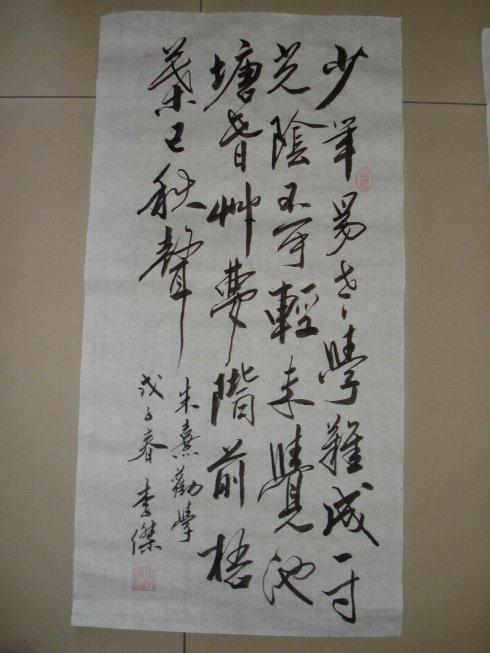 少年易老學難成一寸
光陰不可輕未覺池
塘春草夢階前梧
葉已秋聲
朱熹勸學
戊子春 李傑